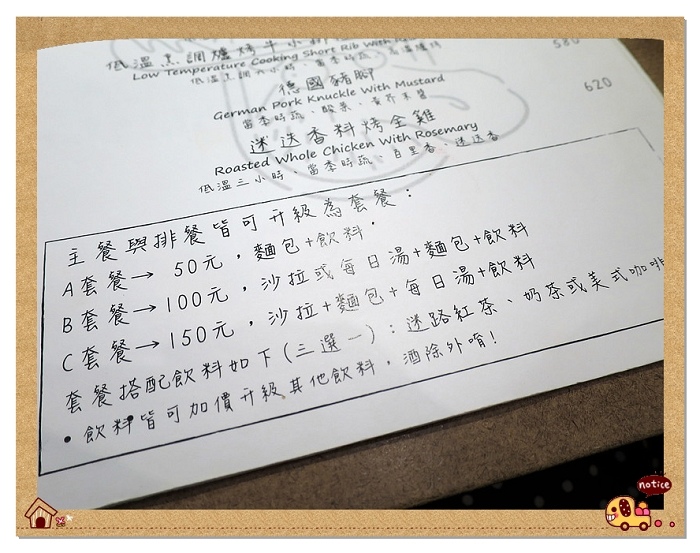 低溫烹調爐烤牛小排
Low Temperature Cooking Short Rib With
580
德國豬腳
German Pork Knuckle With Mustard
當季時蔬、酸菜、黃芥末醬
620
迷迭香料烤全雞
Roasted Whole Chicken With Rosemary
低溫三小時、當季時蔬、百里香、迷迭香
主餐與排餐皆可升級為套餐：
A套餐→ 50元，麵包+飲料．
B套餐→100元，沙拉或每日湯+麵包+飲料
C套餐→150元，沙拉+麵包+每日湯+飲料
套餐搭配飲料如下(三選一)：迷路紅茶、奶茶或美式咖啡
• 飲料皆可加價升級其他飲料，酒除外唷！
notice